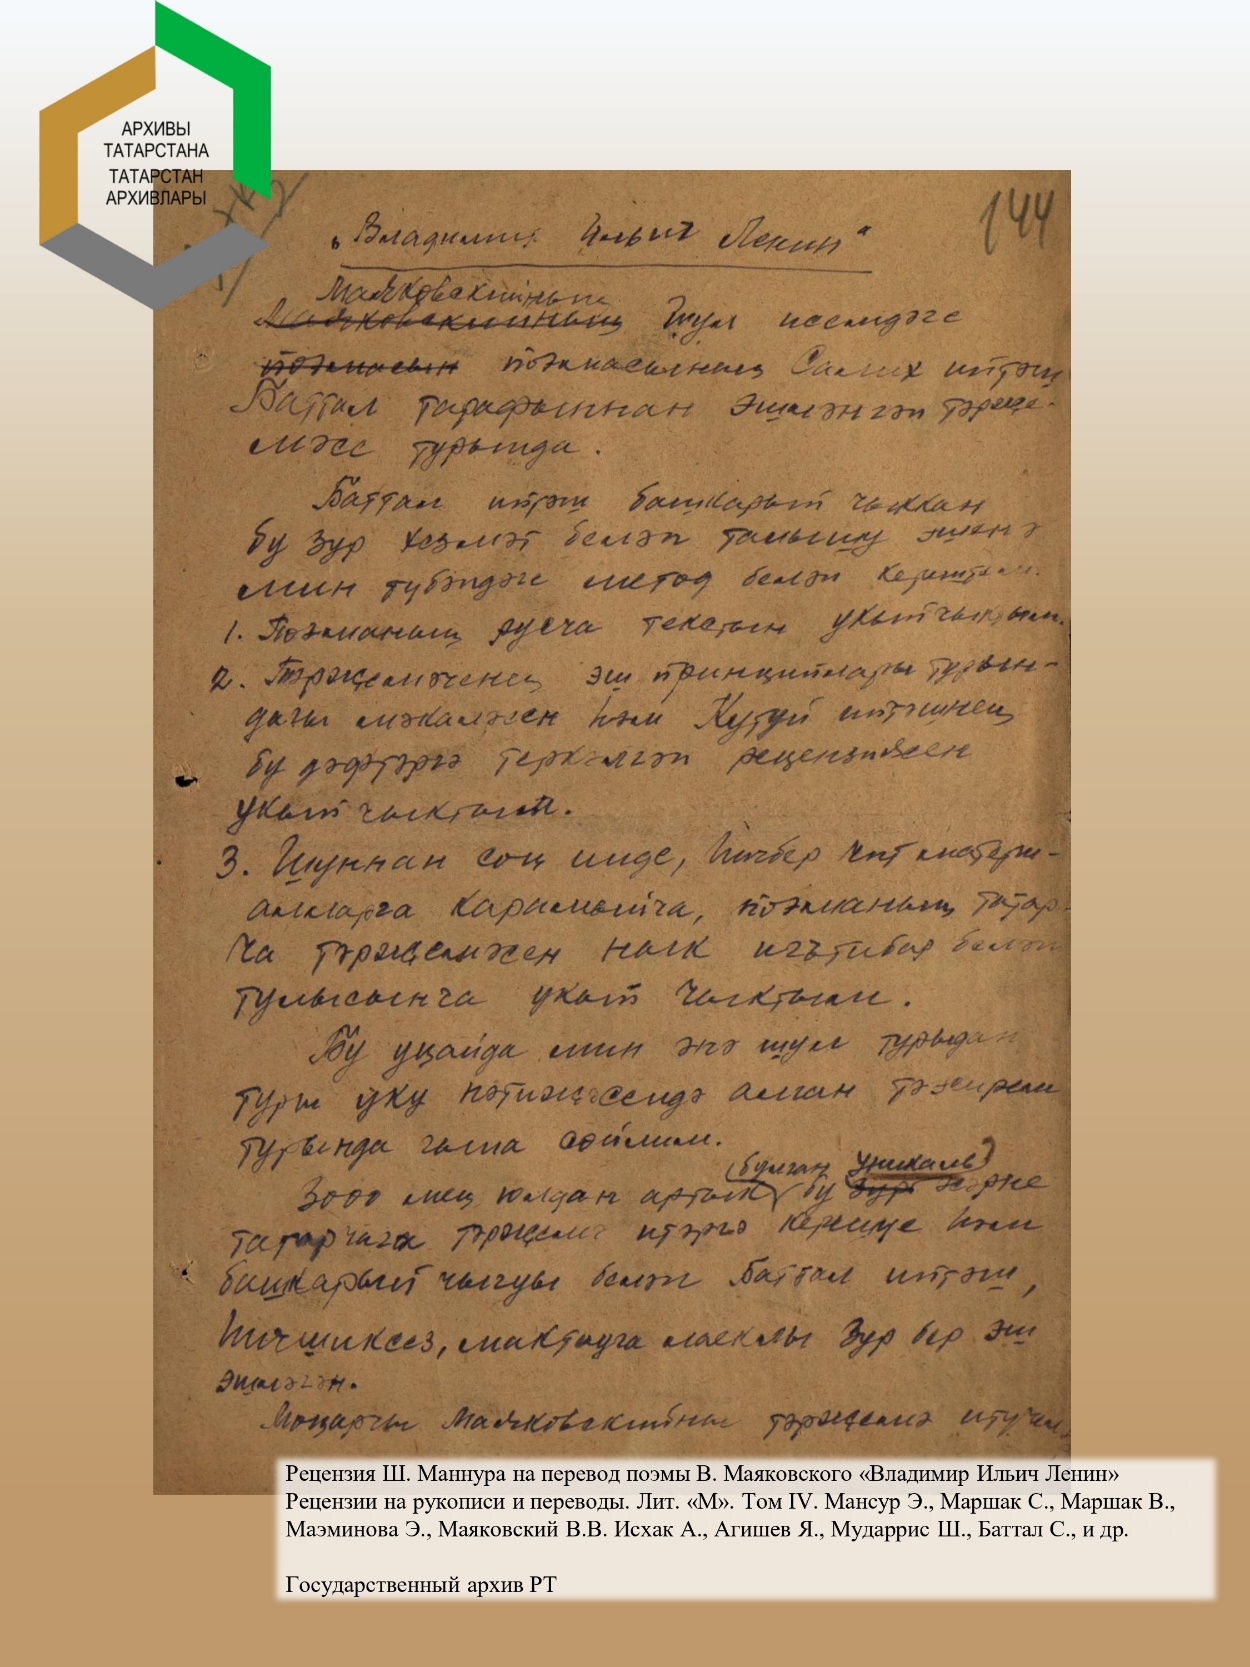 АРХИВЫ
ТАТАРСТАНА
ТАТАРСТАН
АРХИВЛАРЫ
144
„Владимир Ильич Ленин“
Маяковскийның
Маяковскийның Шул исемдәге
поэмасын поэмасының Салих иптәш
Баттал тарафыннан эшләнгән тәрҗе-
мәсе турында.
Баттал иптәш башкарып чыккан
бу зур хезмәт белән танышу эшенә
мин түбәндәге метод белән керештем.
1. Поэманың русча текстын укып чыктым.
2. Тәрҗемәченең эш принциплары турын-
дагы мәкаләсен һәм Кутуй иптәшнең
бу дәфтәргә теркәлгән рецензиясен
укып чыктым.
3. Шуннан соң инде, һичбер чит матери-
алларга карамыйча, поэманың татар-
ча тәрҗемәсен нык игътибар белән
тулысынча укып чыктым.
Бу уңайда мин әнә шул турыдан
туры уку нәтиҗәсендә алган тәэсирем
турында гына сөйлим.
булган уникаль
3000 мең юлдан артык бу зур әсәрне
татарчага тәрҗемә итәргә керешүе һәм
башкарып чыгуы белән Баттал иптәш,
һичшиксез, мактауга лаеклы зур бер эш
эшләгән.
Моңарчы Маяковскийны тәрҗемә итүчеләр
Рецензия Ш. Маннура на перевод поэмы В. Маяковского «Владимир Ильич Ленин»
Рецензии на рукописи и переводы. Лит. «М». Том IV. Мансур Э., Маршак С., Маршак В.,
Маэминова Э., Маяковский В.В. Исхак А., Агишев Я., Мударрис Ш., Баттал С., и др.
Государственный архив РТ